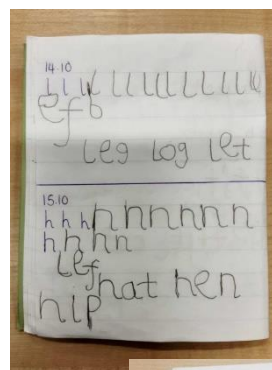 14.10
l l l l l l l l l l l l l
e f b
leg log let
15.10
h h h h h h h h h h
h h h n
lef
hat hen
hip